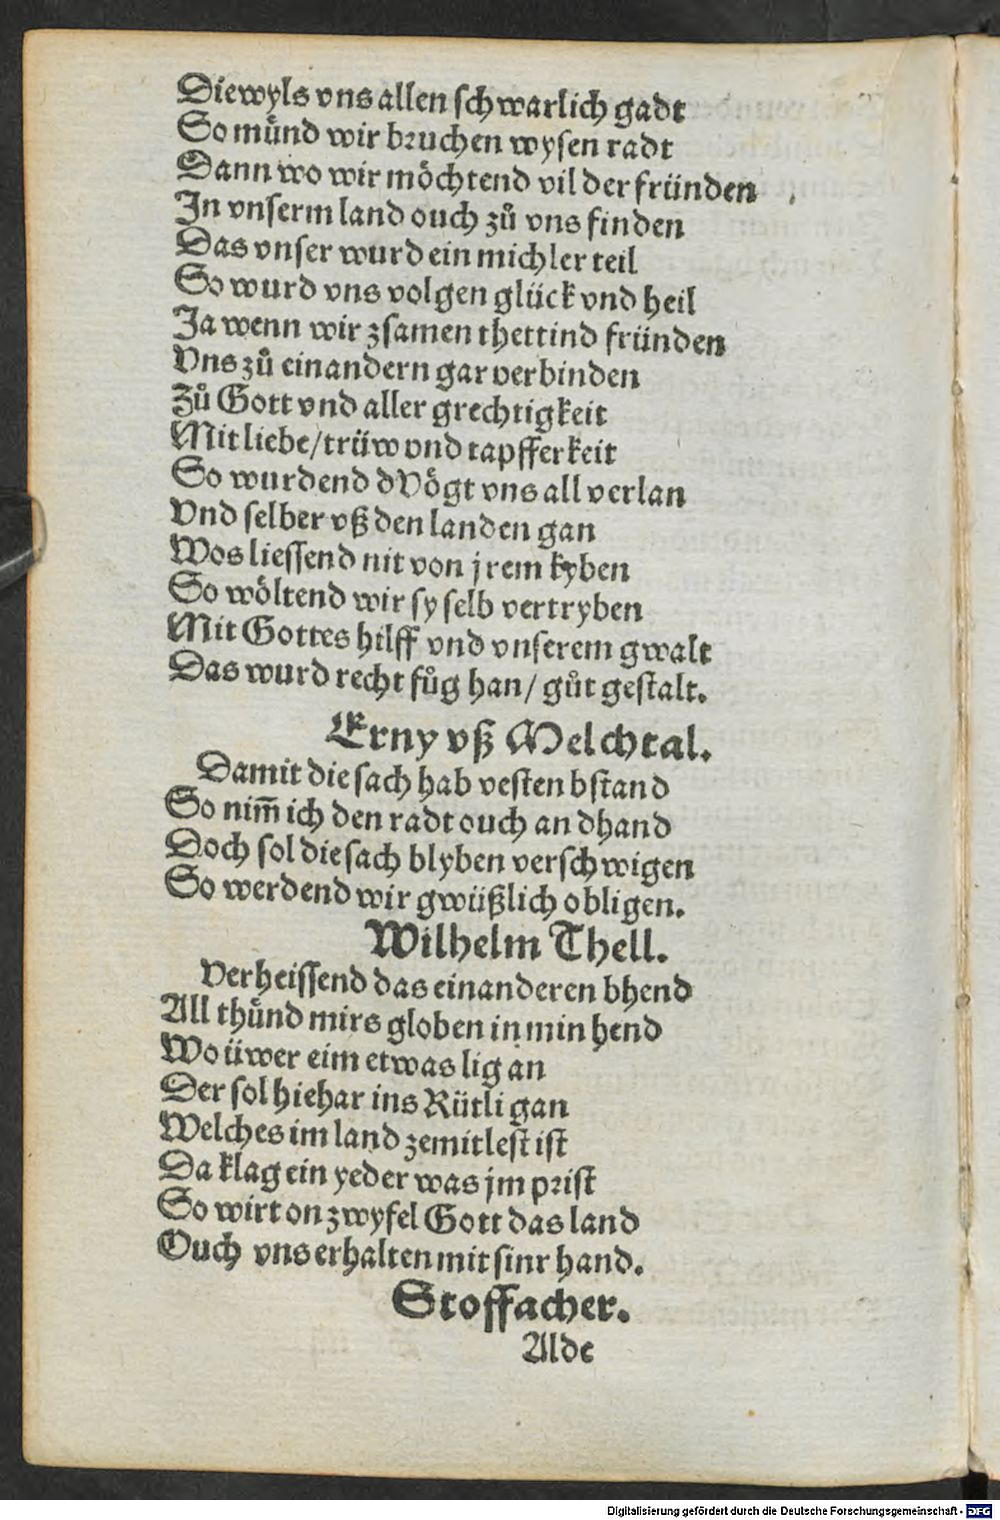 Diewyls vns allen schwarlich gadt
So muͤnd wir bruchen wysen radt
Dann wo wir möchtend vil der fründen
In vnserm land ouch zuͦ vns finden
Das vnser wurd ein michler teil
So wurd vns volgen glück vnd heil
Ja wenn wir zsamen thettind fründen
Vns zuͦ einandern gar verbinden
Zuͦ Gott vnd aller grechtigkeit
Mit liebe/trüw vnd tapfferkeit
So wurdend dVögt vns all verlan
Vnd selber vß den landen gan
Wos liessend nit von jrem kyben
So wöltend wir sy selb vertryben
Mit Gottes hilff vnd vnserem gwalt
Das wurd recht fuͦg han/ guͦt gestalt.
Erny vß Melchtal.
Damit die sach hab vesten bstand
So nim̄ ich den radt ouch an dhand
Doch sol die sach blyben verschwigen
So werdend wir gwüßlich obligen.
Wilhelm Thell.
Verheissend das einanderen bhend
All thuͤnd mirs globen in min hend
Wo üwer eim etwas lig an
Der sol hiehar ins Rütli gan
Welches im land zemitlest ist
Da klag ein yeder was jm prist
So wirt on zwyfel Gott das land
Ouch vns erhalten mit sinr hand.
Stoffacher.
Alde
Digitalisierung gefördert durch die Deutsche Forschungsgemeinschaft - DFG